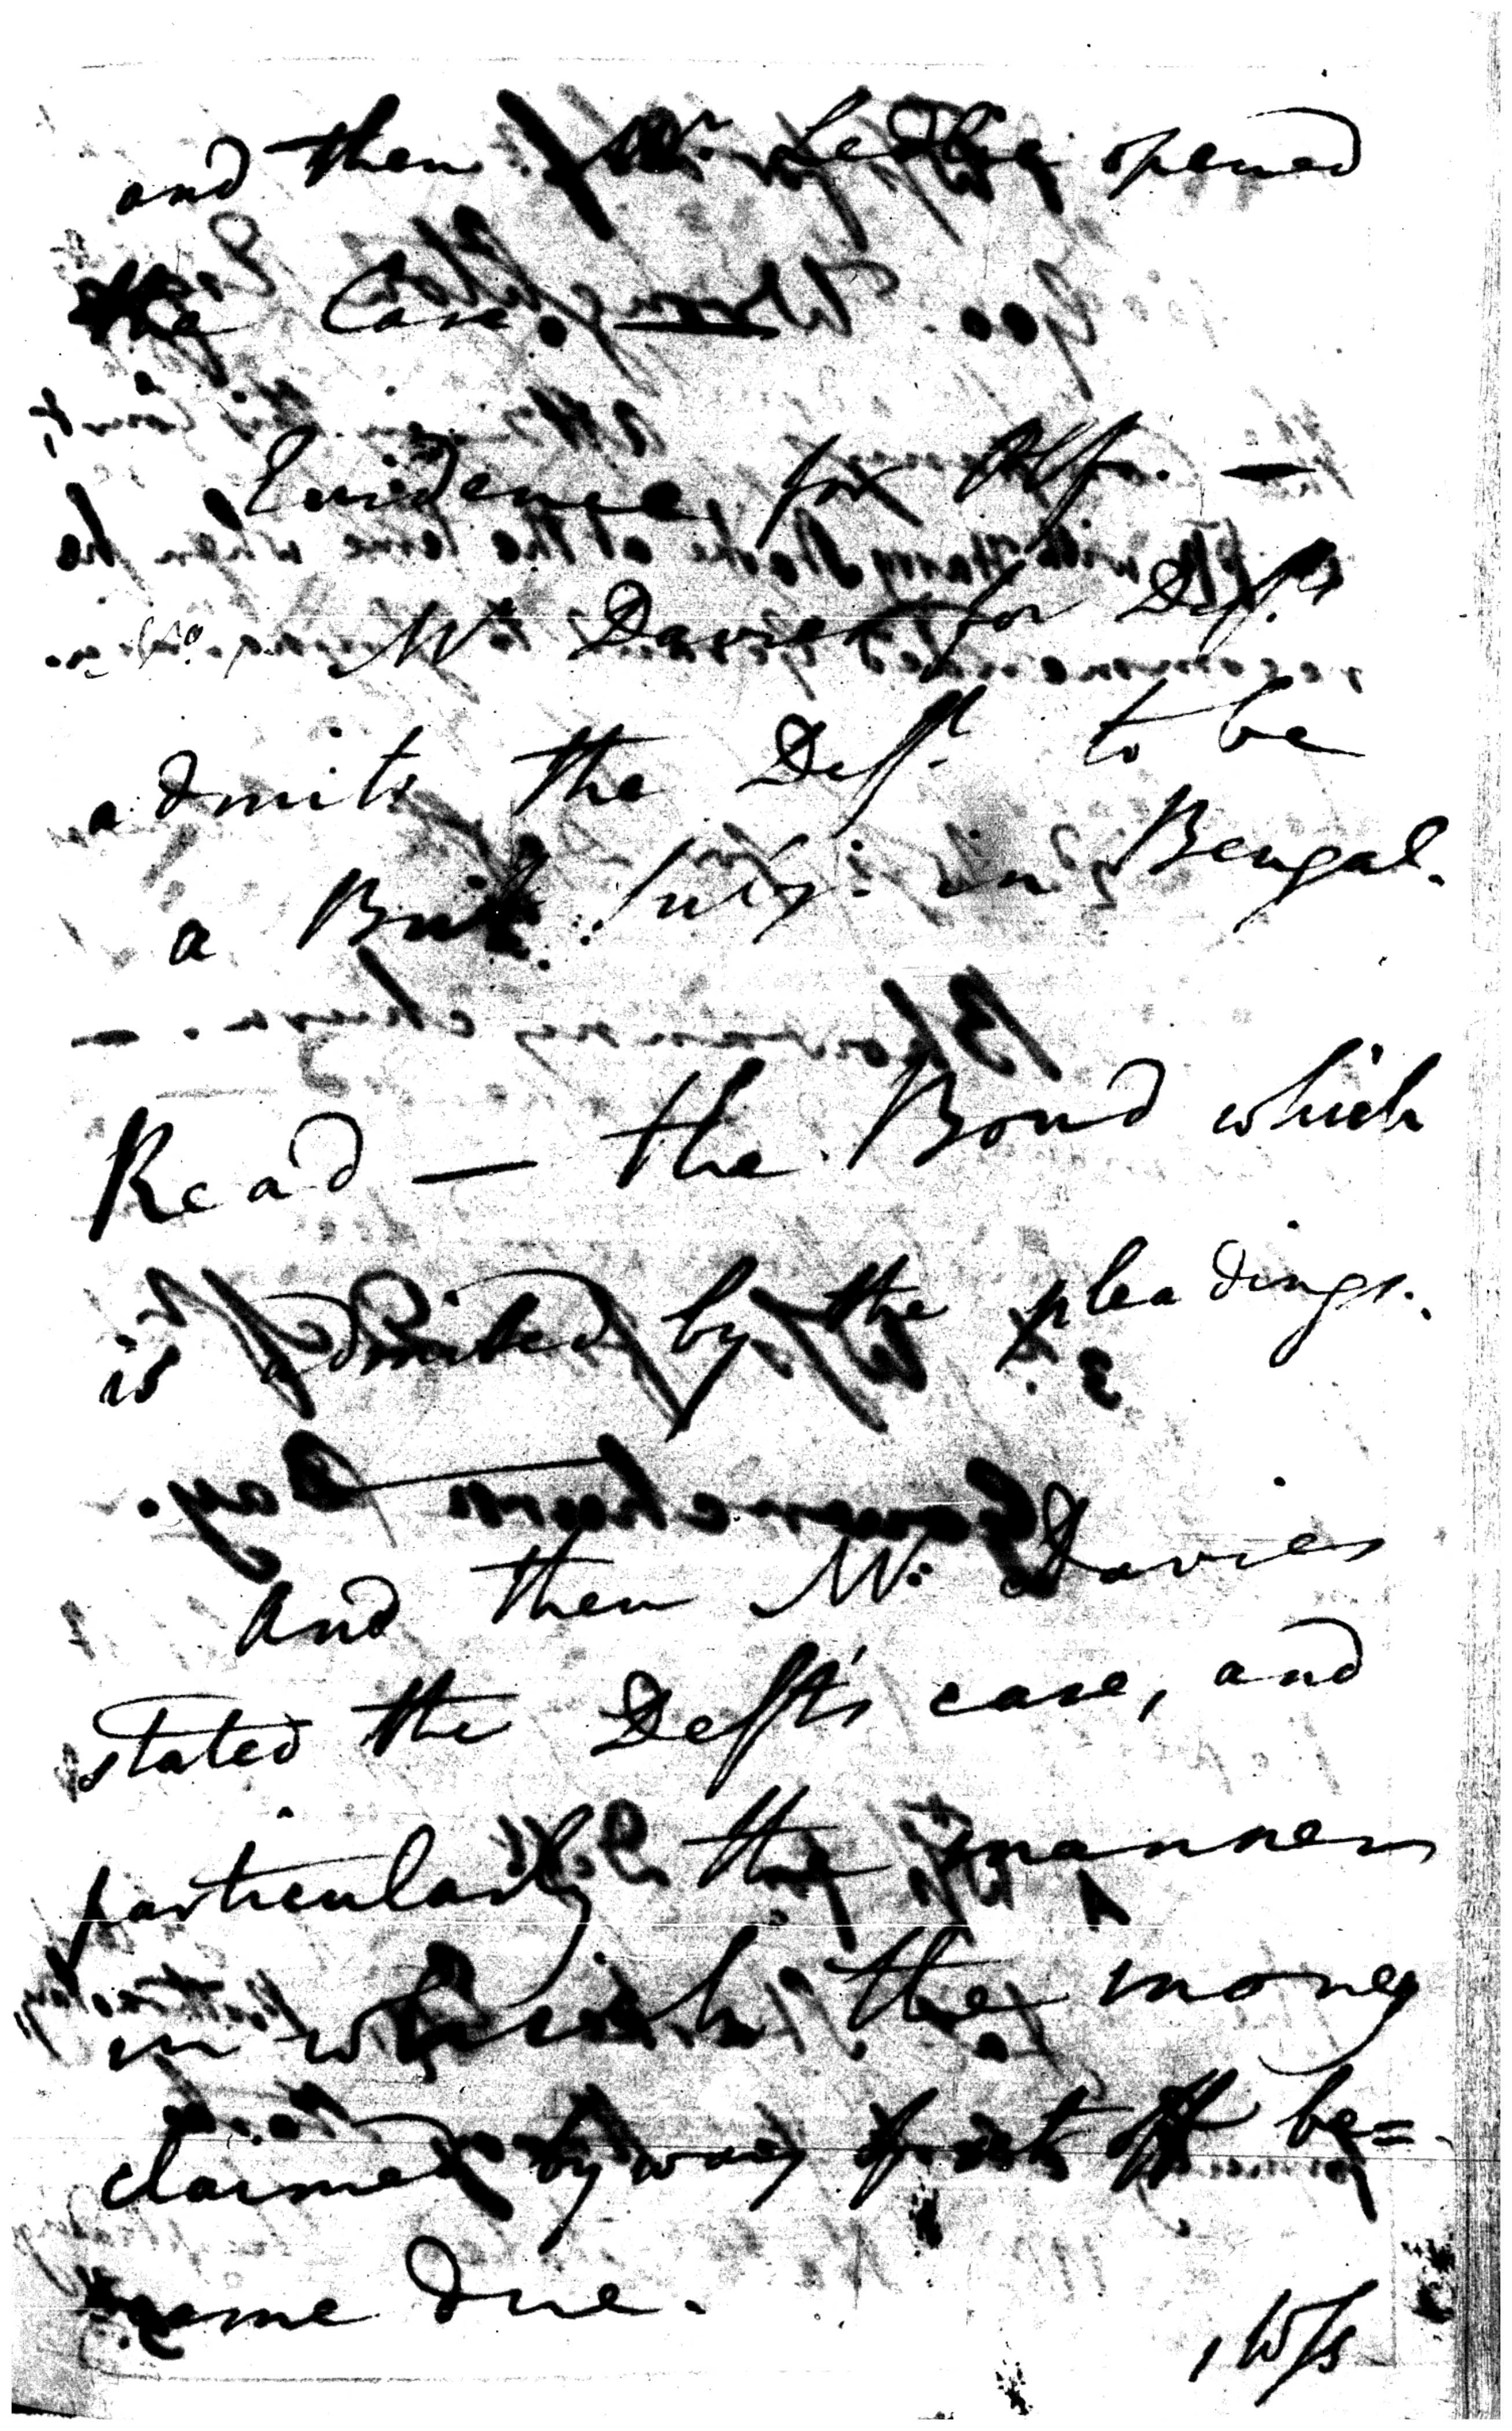 and then Mr. opened
the Case. —
Evidence for Plf. —
Mr. Davies for Deft.
admits the Deft. to be
a Brit. Subj: in Bengal.
Read — the Bond which
is admitted by the pleadings.
And then Mr. Davies
stated the Deft's case, and
particularly the manner
in which the money
claimed by way of set off be=
came due.